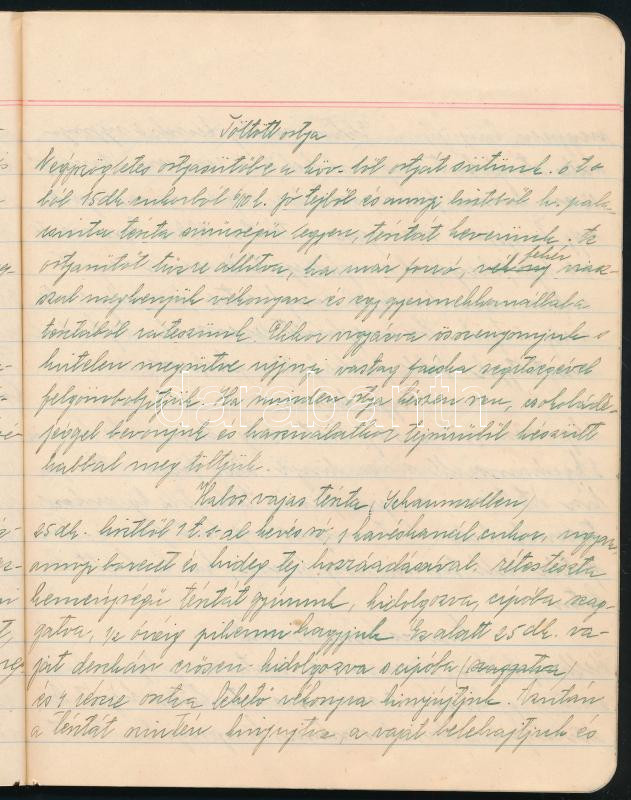 Töltött ostya
Négyszögletes ostyasütőbe a köv.-ből ostyát sütünk. 6 t.o.
ból 15 dk. cukorból 4/10 l. jó tejből és annyi lisztből h. pala-
csinta tészta sűrűségű legyen, tésztát keverünk. Az
fehér
ostyasütőt tűzre állítva, ha már forró, viasz-
szal megkenjük vékonyan és egy gyermekkanállal a
tésztából ráteszünk. Ekkor vigyázva összenyomjuk s
hirtelen megsütve ujjnyi vastag fácska segítségével
felgömbölyítjük. Ha minden ostya készen van, csokoládé-
jéggel bevonjuk és használatkor tejszínből készült
habbal megtöltjük.
Habos vajas tészta (Schaumrollen)
25 dk. lisztből 1 t. s-al kevés só, 1 kávéskanál cukor, ugyan-
annyi borecet és hideg tej hozzáadásával rétestészta
keménységű tésztát gyúrunk, kidolgozva, cipóba
gatva, 1/2 óráig pihenni hagyjuk. Ez alatt 25 dk. va-
jat deszkán erősen kidolgozva s cipóba (szaggatva)
és 4 részre osztva lehető vékonyra kinyújtjuk. Azután
a tésztát szintén kinyujtva, a vajat belehajtjuk és
darabanth